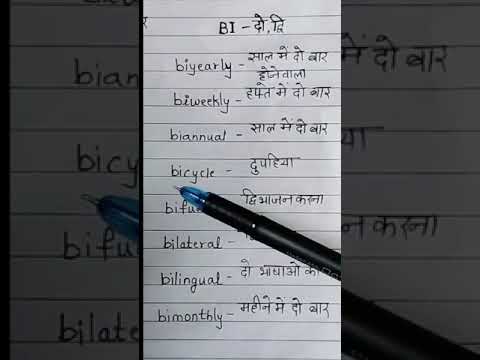 BI - दो, द्वि
biyearly - साल में दो बार
होनेवाला
biweekly - हफ्ते में दो बार
biannual - साल में दो बार
bicycle - दुपहिया
द्विभाजन करना
bilateral -
bilingual - दो भाषाओं
bimonthly - महीने में दो बार